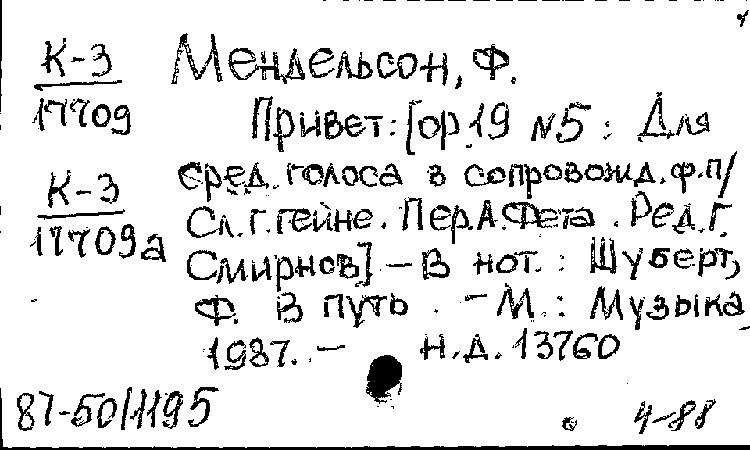 К-3 Мендельсон, Ф.
17709 Привет: [ор.19 №5 : Для
К-3 сред. голоса в сопровожд. ф.п/
17709а Сл. Г. Гейне. Пер. А. Фета. Ред. Г.
Смирнов] - В нот. : Шуберт,
Ф. В путь. - М. : Музыка,
1987. - н.д. 13760
87-50/1195 4-88